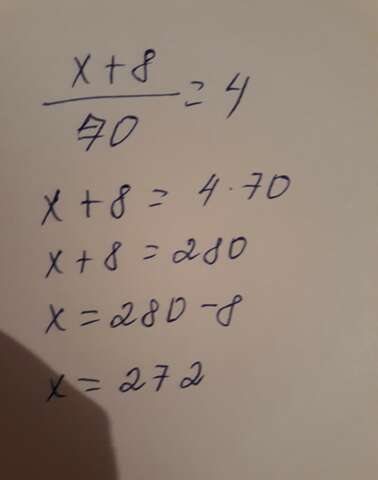 x+8
70 = 4
x+8 = 4·70
x+8 = 280
x = 280-8
x = 272